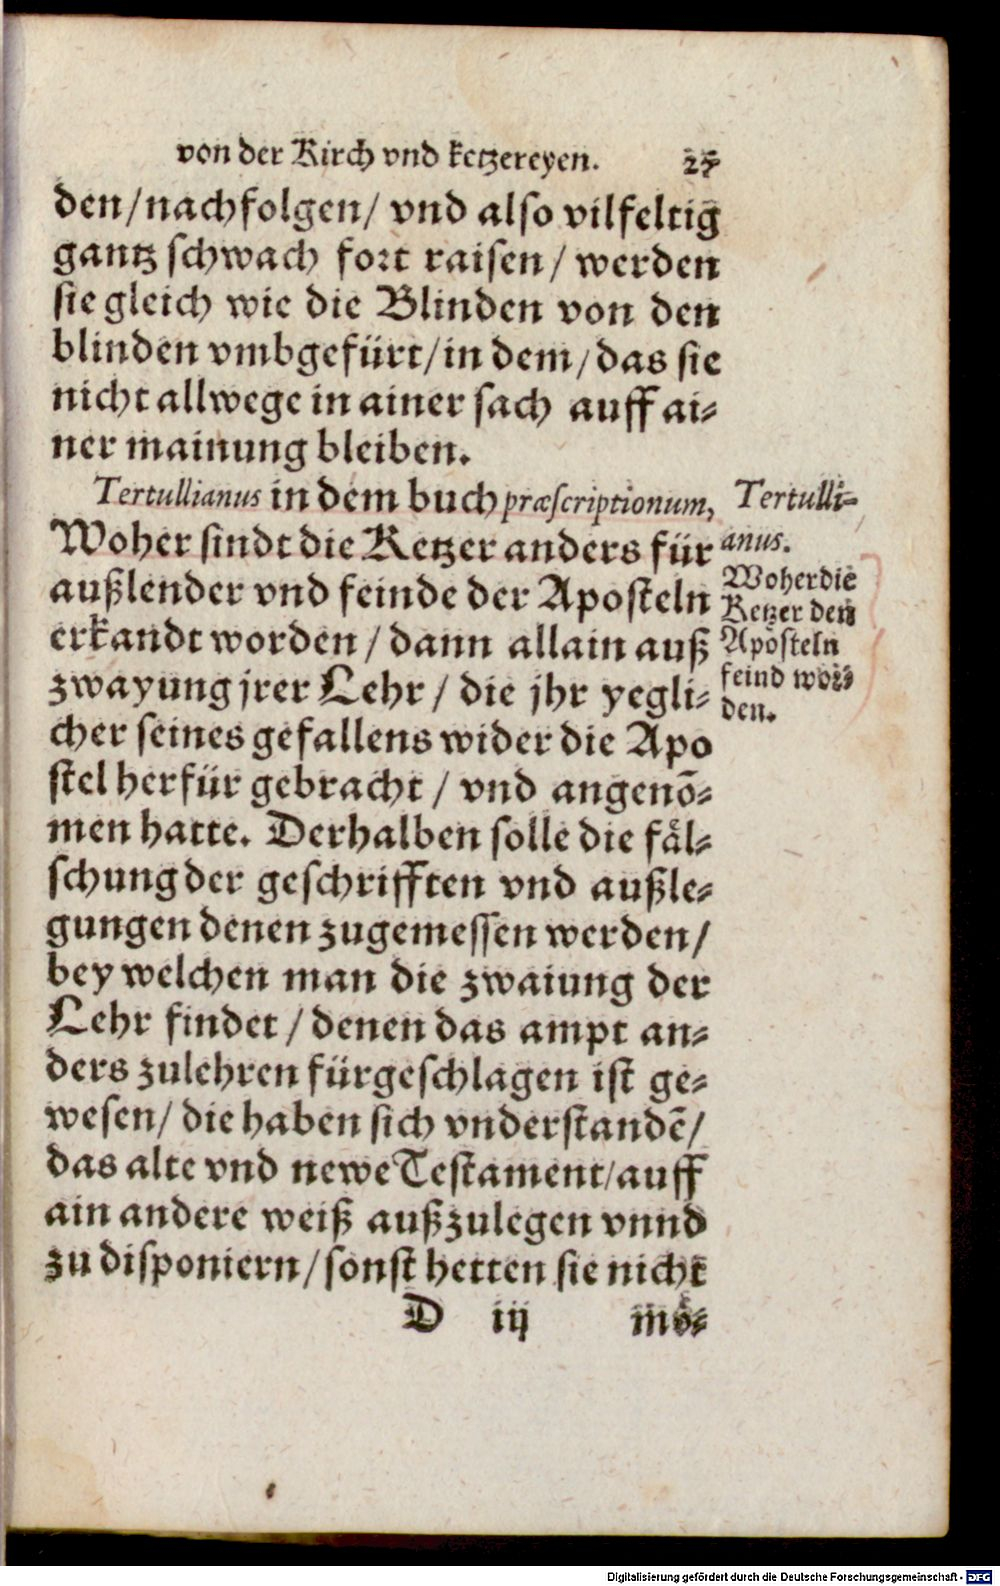 von der Kirch vnd ketzereyen. 27
den/nachfolgen/ vnd also vilfeltig
gantz schwach fort raisen/ werden
sie gleich wie die Blinden von den
blinden vmbgefürt/in dem/das sie
nicht allwege in ainer sach auff ai⸗
ner mainung bleiben.
Tertullianus in dem buch præscriptionum,
Woher sindt die Ketzer anders für
außlender vnd feinde der Aposteln
erkandt worden/ dann allain auß
zwayung jrer Lehr/ die jhr yegli⸗
cher seines gefallens wider die Apo
stel herfür gebracht/ vnd angenō⸗
men hatte. Derhalben solle die fäl⸗
schung der geschrifften vnd außle⸗
gungen denen zugemessen werden/
bey welchen man die zwaiung der
Lehr findet/denen das ampt an⸗
ders zulehren fürgeschlagen ist ge⸗
wesen/ die haben sich vnderstandē/
das alte vnd newe Testament/auff
ain andere weiß außzulegen vnnd
zu disponiern/sonst hetten sie nicht
D iij mö⸗
Tertulli⸗
anus.
Woher die
Ketzer den
Aposteln
feind wor⸗
den.
Digitalisierung gefördert durch die Deutsche Forschungsgemeinschaft - DFG